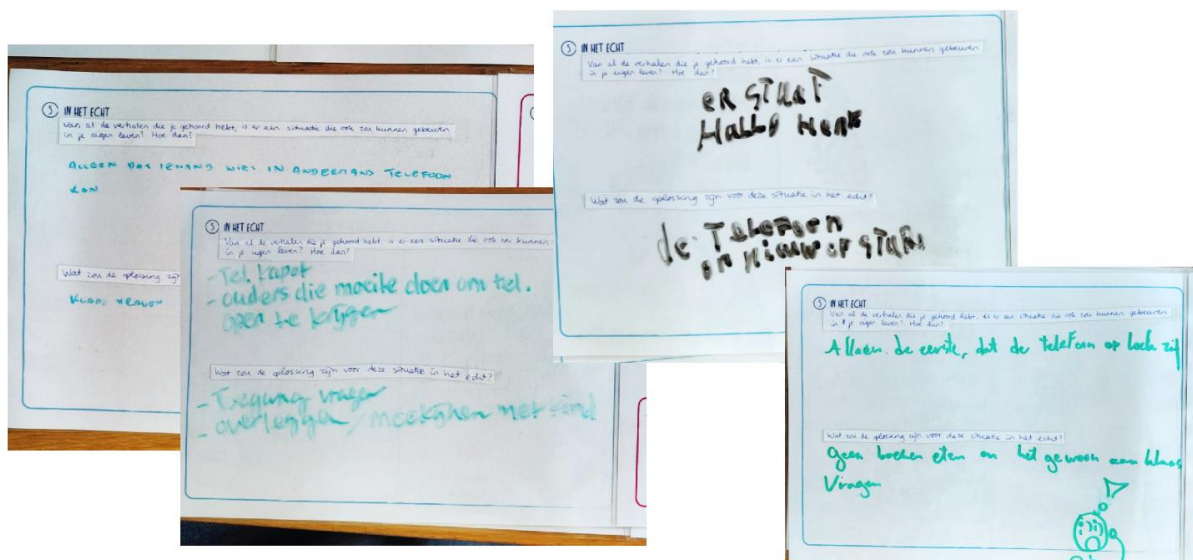 5 IN HET ECHT
Van al de verhalen die je gehoord hebt, is er een situatie die ook zou kunnen gebeuren
in je eigen leven? Hoe dan?
ALLEEN DAT IEMAND NIET IN ANDERMANS TELEFOON
KON
Wat zou de oplossing zij
KLAAS VRAGEN
5 IN HET ECHT
Van al de verhalen die je gehoord hebt, is er een situatie die ook zou kunnen
in je eigen leven? Hoe dan?
- Tel. kapot
- ouders die moeite doen om tel.
open te krijgen
Wat zou de oplossing zijn voor deze situatie in het echt?
- Toegang vragen
- overleggen / meekijken met kind
5 IN HET ECHT
Van al de verhalen die je gehoord hebt, is er een situatie die ook zou kunnen gebeuren
in je eigen leven? Hoe dan?
eR STAAT
HALLO HenK
Wat zou de oplossing zijn voor deze situatie in het echt?
de TeLeFoen
op Nieuw
5 IN HET ECHT
Van al de verhalen die je gehoord hebt, is er een situatie die ook zou kunnen gebeuren
in je eigen leven? Hoe dan?
Alleen de eerste, dat de telefoon op lock zit
Wat zou de oplossing zijn voor deze situatie in het echt?
Geen koeken eten en het gewoon aan klaas
Vragen